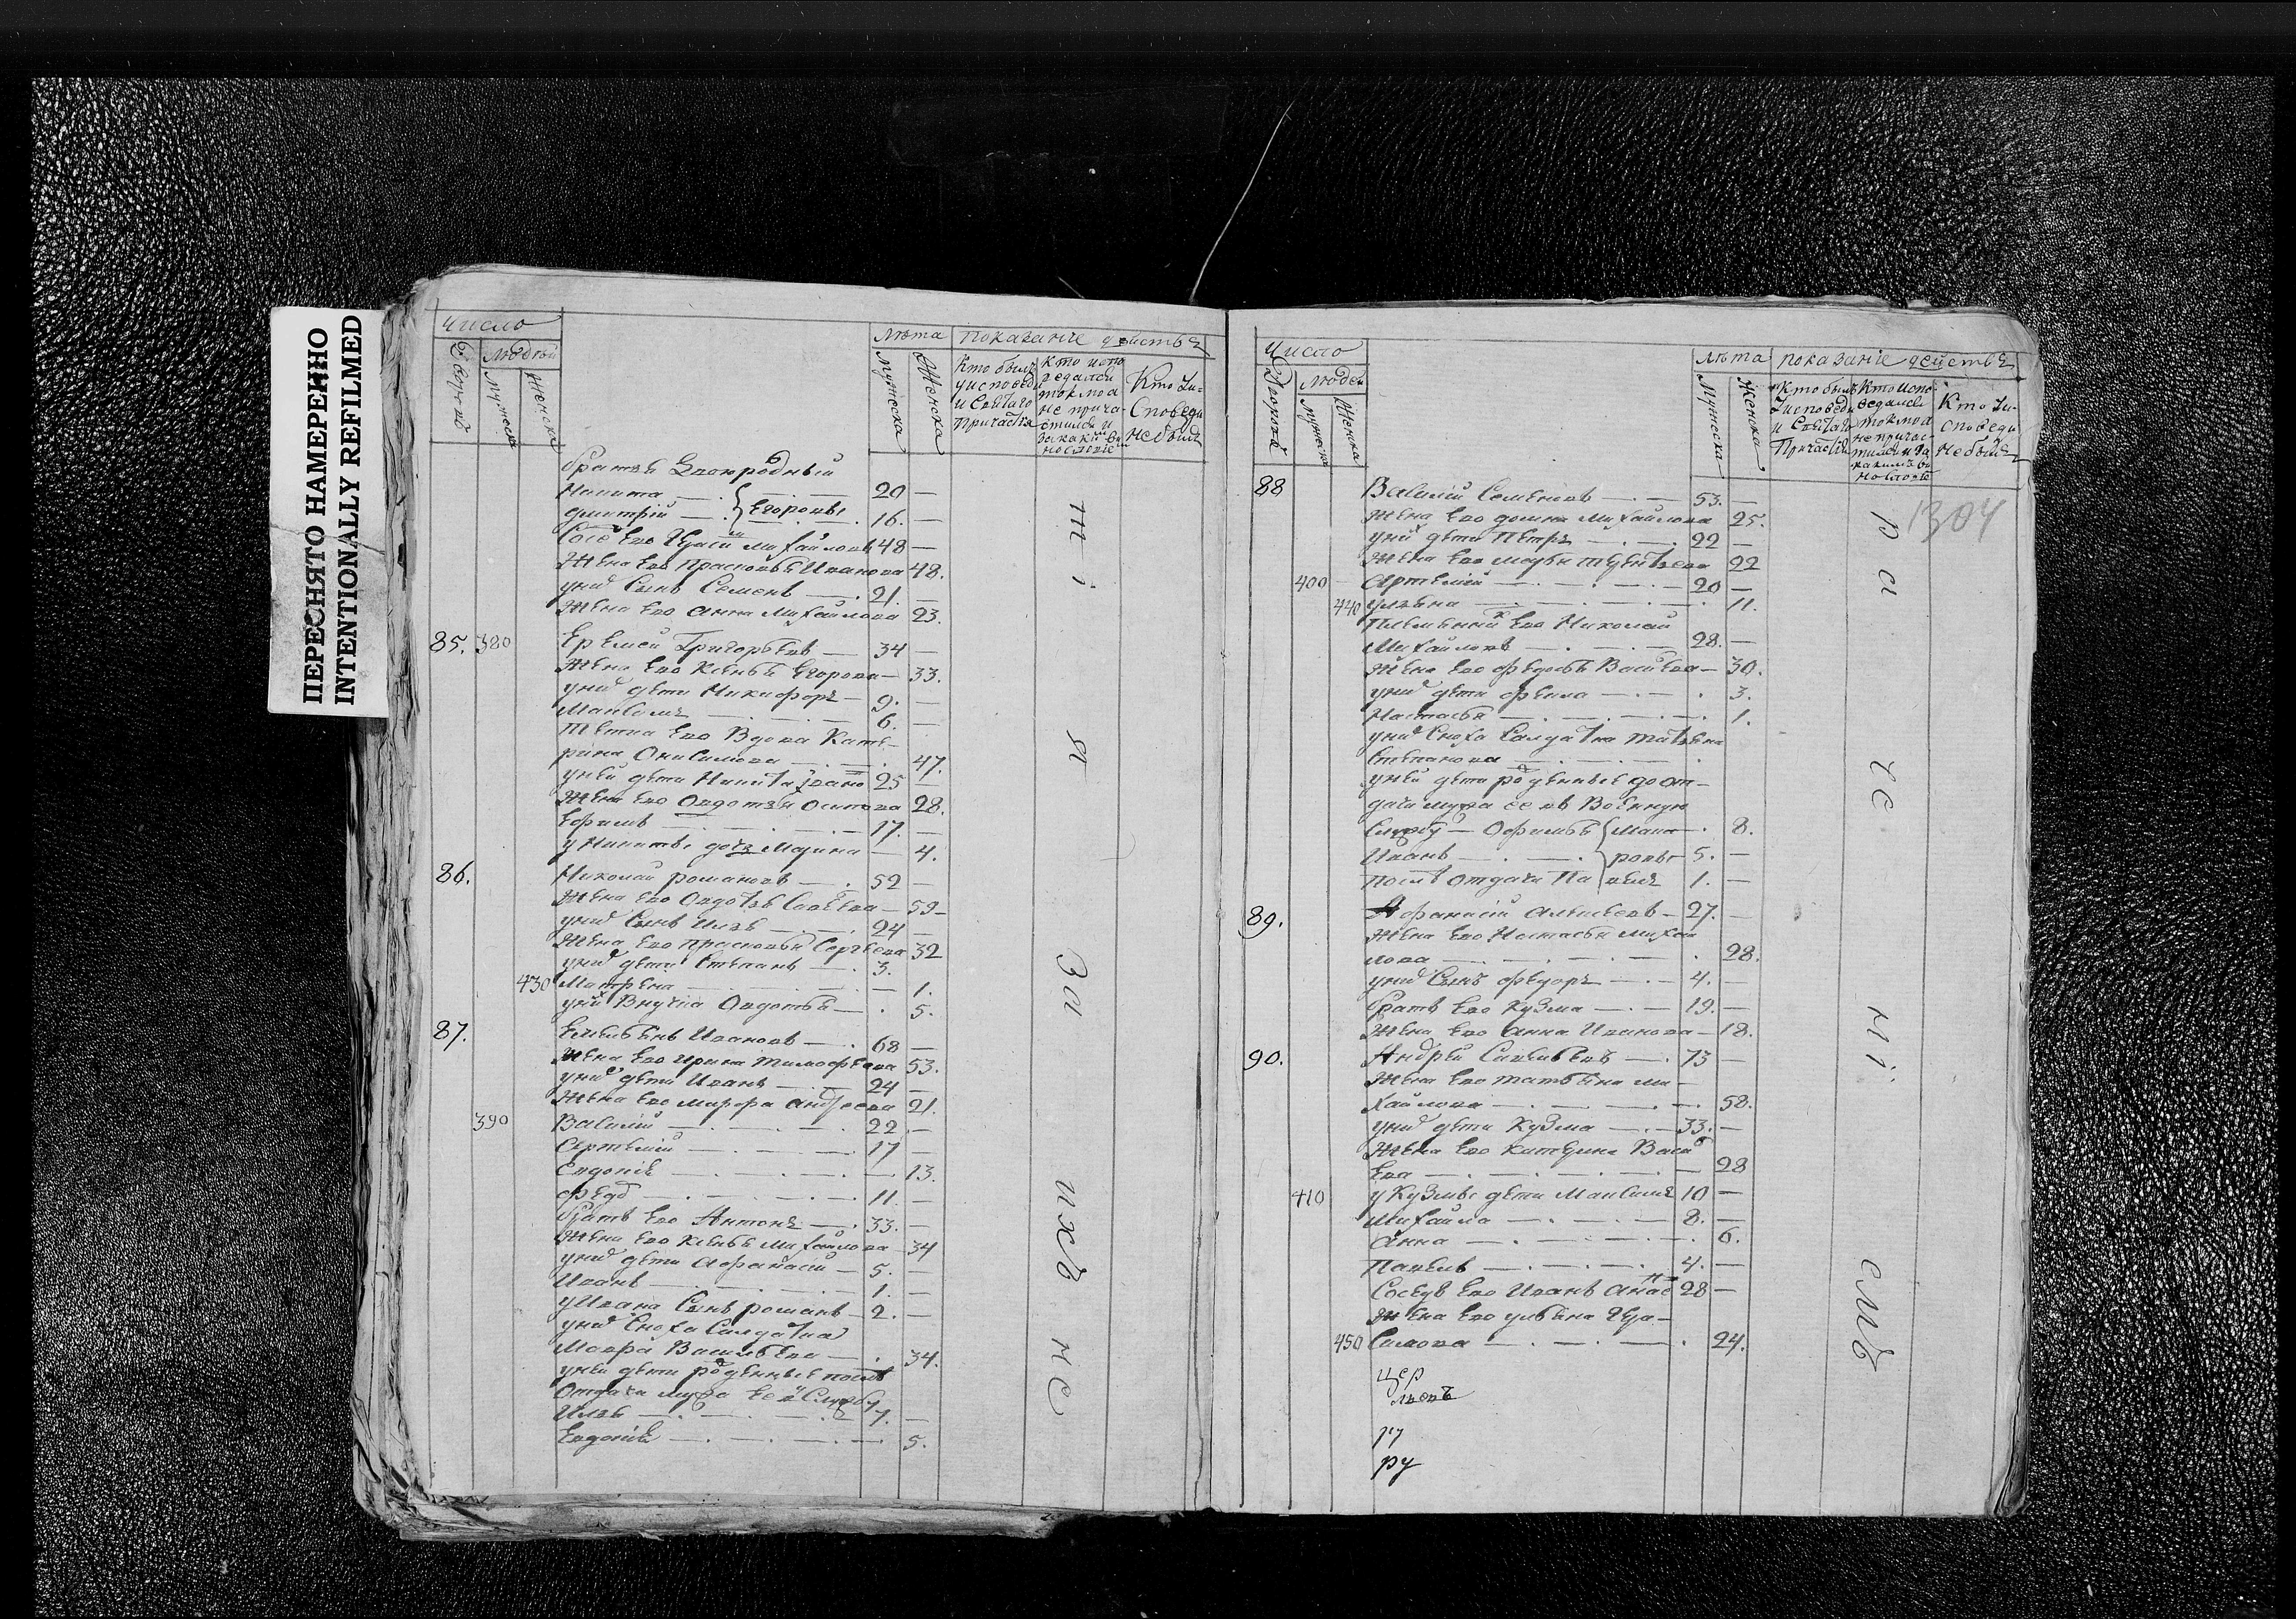 ПЕРЕСНЯТО НАМЕРЕННО
INTENTIONALLY REFILMED
Число
людей
мужеска
женска
лѣта
мужеска
женска
показание действъ
Кто былъ
уисповеди
и Святаго
Причастия
Кто испо
ведался
токмо а
не прича-
стился и
Кто уи-
споведи
не былъ
братья Двоюродныи
Никита — 20 —
Дмитрий — Егоровы 16. —
михайловъ 48 —
Жена Ево Прасковья Иванова 48.
унихъ Сынъ Семенъ — 21. —
Жена Ево Анна Михайлова 23.
85. 380 Еремей Григорьевъ — 34 —
Жена Ево Ксенья Егорова — 33.
унихъ дети Никифоръ — 9. —
Максимъ — 6. —
тетка Ево Вдова Кате-
рина Онисимова — 47.
уней дети Никита 25 —
Жена Ево Овдотья Осипова 28.
Ефимъ — 17. —
у Никиты дочь Марина — 4.
86. Николай романовъ — 52 —
Жена Ево Овдотья Савеева — 59
унихъ Сынъ Илья — 24 —
Жена Ево Прасковья Сергеева 32
унихъ дети Степанъ — 3. —
430 Матрена — 1.
унихъ Внучка Овдотья — 5.
87. Емельянъ Ивановъ — 68 —
Жена Ево Ирина тимофеева 53.
унихъ дети Иванъ — 24 —
Жена Ево Марфа Андреева 21.
390 Василий — 22. —
Артемий — 17 —
Евдокия — 13.
Федоръ — 11. —
братъ Ево Антонъ — 33. —
Жена Ево Ксенья Михайлова 34
унихъ дети Афанасий — 5. —
Иванъ — 1. —
у Ивана Сынъ романъ — 2. —
унихъ Сноха Салдатка
Мавра Васильева — 34.
уней дети рожденные после
Отдачи мужа Ее в Службу
Илья — 7. —
Евдокия — 5.
ті
я
за
ихъ
не
Число
Дворовъ
людей
мужеска
женска
лѣта
мужеска
женска
показание действъ
Кто былъ
уисповеди
и Святаго
Причастия
Кто испо-
ведался
токмо а
не причас-
тился и за
Кто уи-
споведи
не былъ
1304
88 Василий Семеновъ — 53. —
Жена Ево домна Михайлова 25.
унихъ дети Петръ — 22 —
Жена Ево 22
400 Артемий — 20 —
440 ульяна — 11.
Племянникъ Ево Николай
Михайловъ — 28. —
Жена Ево Федосья Васильева — 30.
унихъ дети Фекла — 3.
Настасья — 1.
унихъ Сноха Салдатка татьяна
Степанова —
уней дети рожденные до от-
дачи мужа ее въ Военную
Службу — Офимья Мака — 8.
Иванъ — ровы 5. —
После отдачи Павелъ 1. —
89. Афанасий Алексеевъ — 27. —
Жена Ево Настасья Михай
лова — 28.
унихъ Сынъ Федоръ — 4. —
братъ Ево Кузма — 19. —
Жена Ево Анна Иванова — 18.
90. Андрей Савельевъ — 73 —
Жена Ево татьяна ми-
хайлова — 58.
унихъ дети Кузма — 33. —
Жена Ево Катерина Василь
ева — 28
410 у Кузмы дети Максимъ 10 —
Михайла — 8. —
Анна — 6.
Павелъ — 4. —
Соседъ Ево Иванъ 28 —
Жена Ево ульяна Гера-
450 Симова — 24.
цер
ру
ру
ра
чс
ні.
емъ